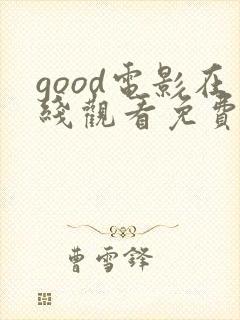 good電影在
綫觀看免費
曹雪鋒